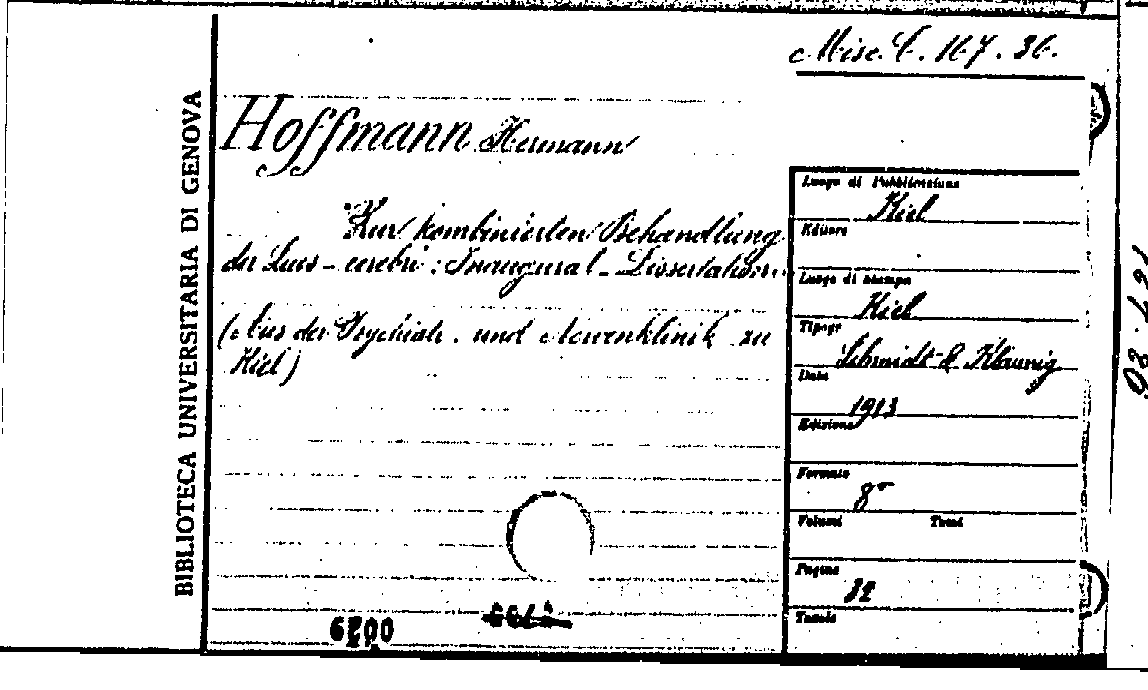 Misc. C. 167. 36.
BIBLIOTECA UNIVERSITARIA DI GENOVA
Hoffmann Hermann
Zur kombinierten Behandlung
der Lues-cerebri: Inaugural-Dissertation.
(Aus der Psychiatr. und Nervenklinik zu
Kiel)
Luogo di Pubblicazione
Kiel
Editore
Luogo di stampa
Kiel
Tipogr
Schmidt & Klaunig
Data
1913
Edizione
Formato
8°
Volumi Tomi
Pagine
32
Tavole
0029